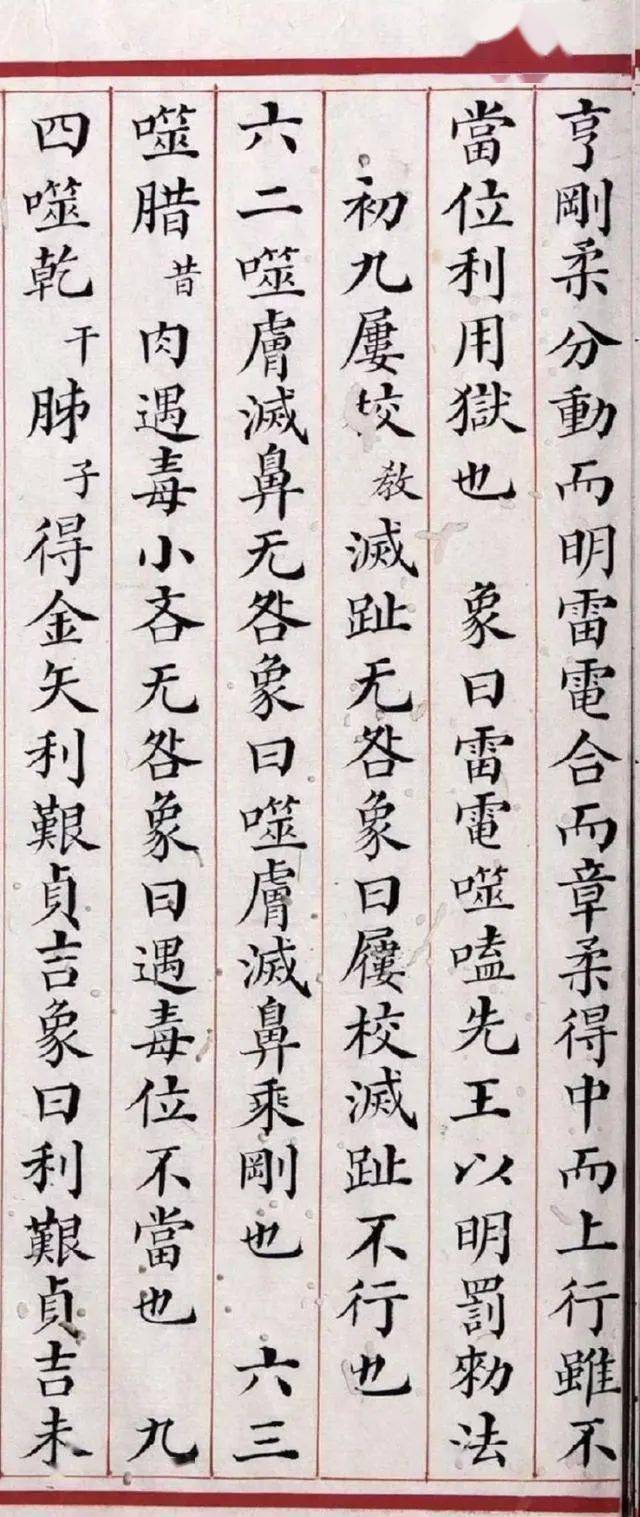 亨剛柔分動而明雷電合而章柔得中而上行雖不
當位利用獄也 象曰雷電噬嗑先王以明罰勑法
初九屨校教滅趾无咎象曰屨校滅趾不行也
六二噬膚滅鼻无咎象曰噬膚滅鼻乘剛也 六三
噬腊昔肉遇毒小吝无咎象曰遇毒位不當也 九
四噬乾干胏子得金矢利艱貞吉象曰利艱貞吉未